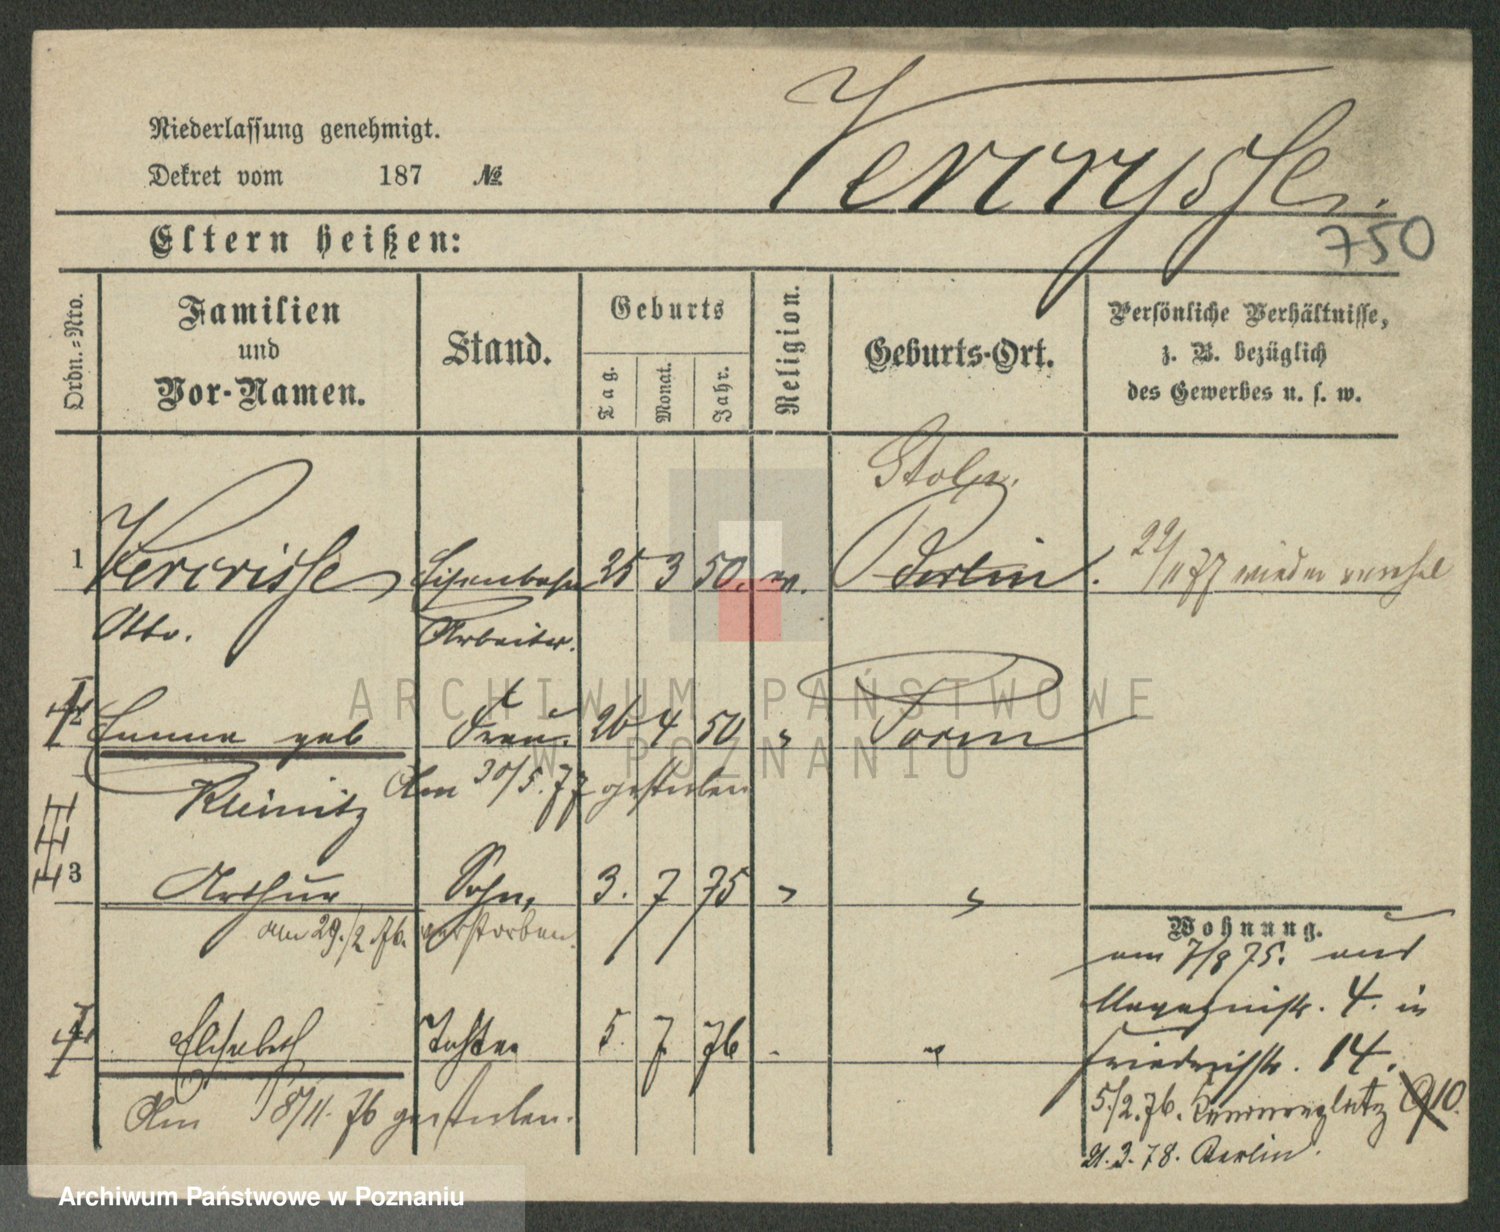 Niederlassung genehmigt.
Dekret vom 187 №
Vercrysse.
750
Eltern heißen:
Ordn.=Nro.
Familien
und
Vor-Namen.
Stand.
Geburts
Tag.
Monat.
Jahr.
Religion.
Geburts-Ort.
Persönliche Verhältnisse,
z. B. bezüglich
des Gewerbes u. s. w.
Stolp.
1 Vercrisse Eisenbahn 25 3 50. Berlin. 22/11 77 wieder
Otto. Arbeiter.
Emma geb Frau. 26 4 50 "
Kleinitz Am 30/5. 77 gestorben
3 Arthur Sohn, 3. 7 75 " "
am 29./2 76. verstorben.
Elisabeth Tochter 5. 7 76 "
Am 18/11. 76 gestorben.
Wohnung.
am 7/8 75. aus
Magazinstr. 4. in
Friedrichstr. 14.
5./2. 76. 10.
21. 3. 78. Berlin.
ARCHIWUM PAŃSTWOWE
W POZNANIU
Archiwum Państwowe w Poznaniu